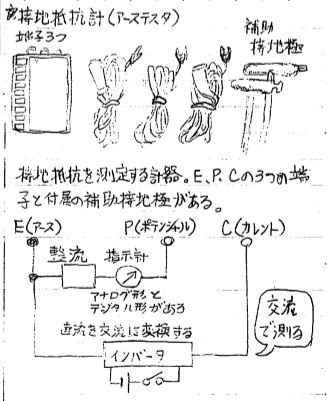 ☆接地抵抗計(アーステスタ)
端子3つ
補助
接地極
接地抵抗を測定する計器。E、P、Cの3つの端
子と付属の補助接地極がある。
E(アース) P(ポテンシャル) C(カレント)
整流 指示計
アナログ形と
デジタル形がある
直流を交流に変換する
インバータ
交流
で測る